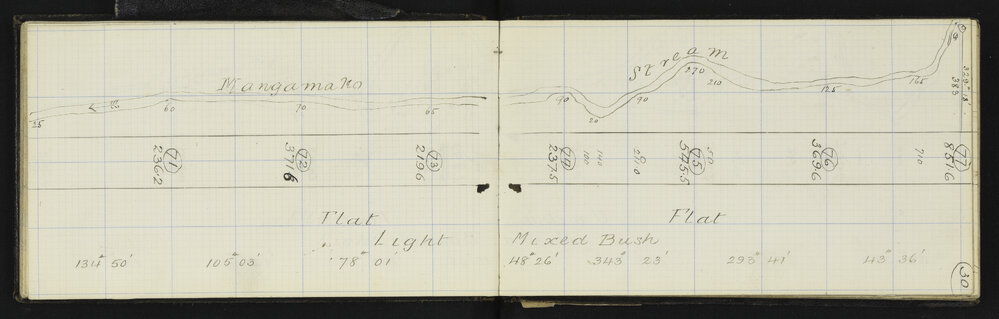 Mangamako Stream
25
60
70
65
90
20
90
270
210
125
165
329° 18'
383
71
2362
72
3716
73
2196
74
2375
100
140
75
5455
50
76
3696
710
77
8516
Flat
Flat
Light Mixed Bush
134° 50'
105° 03'
78° 01'
48° 26'
343° 23'
293° 41'
43° 36'
30